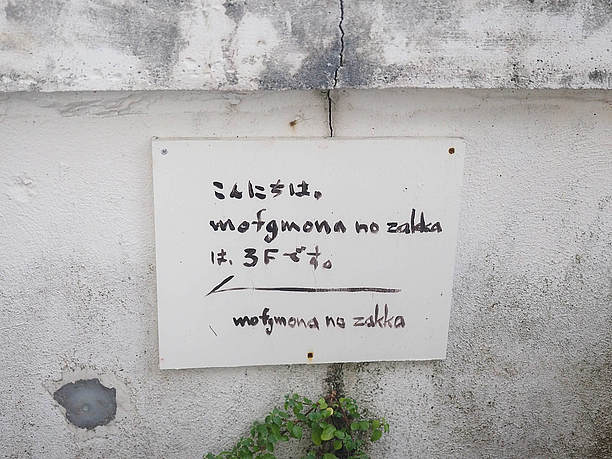 こんにちは。
mofgmona no zakka
は、3Fです。
mofgmona no zakka